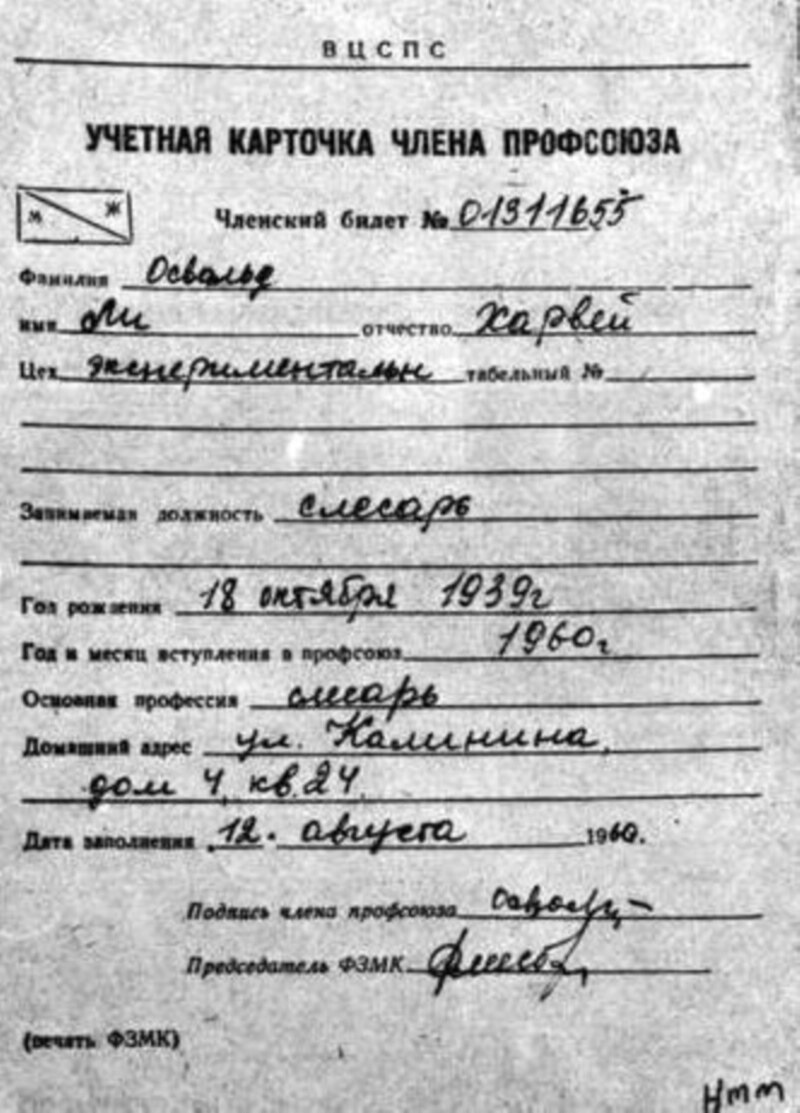 ВЦСПС
УЧЕТНАЯ КАРТОЧКА ЧЛЕНА ПРОФСОЮЗА
м ж Членский билет № 01311655
Фамилия Освальд
имя Ли отчество Харвей
Цех экспериментальн табельный №
Занимаемая должность слесарь
Год рождения 18 октября 1939г
Год и месяц вступления в профсоюз 1960г
Основная профессия слесарь
Домашний адрес ул. Калинина,
дом 4, кв. 24.
Дата заполнения 12. августа 1960.
Подпись члена профсоюза
Председатель ФЗМК
(печать ФЗМК)